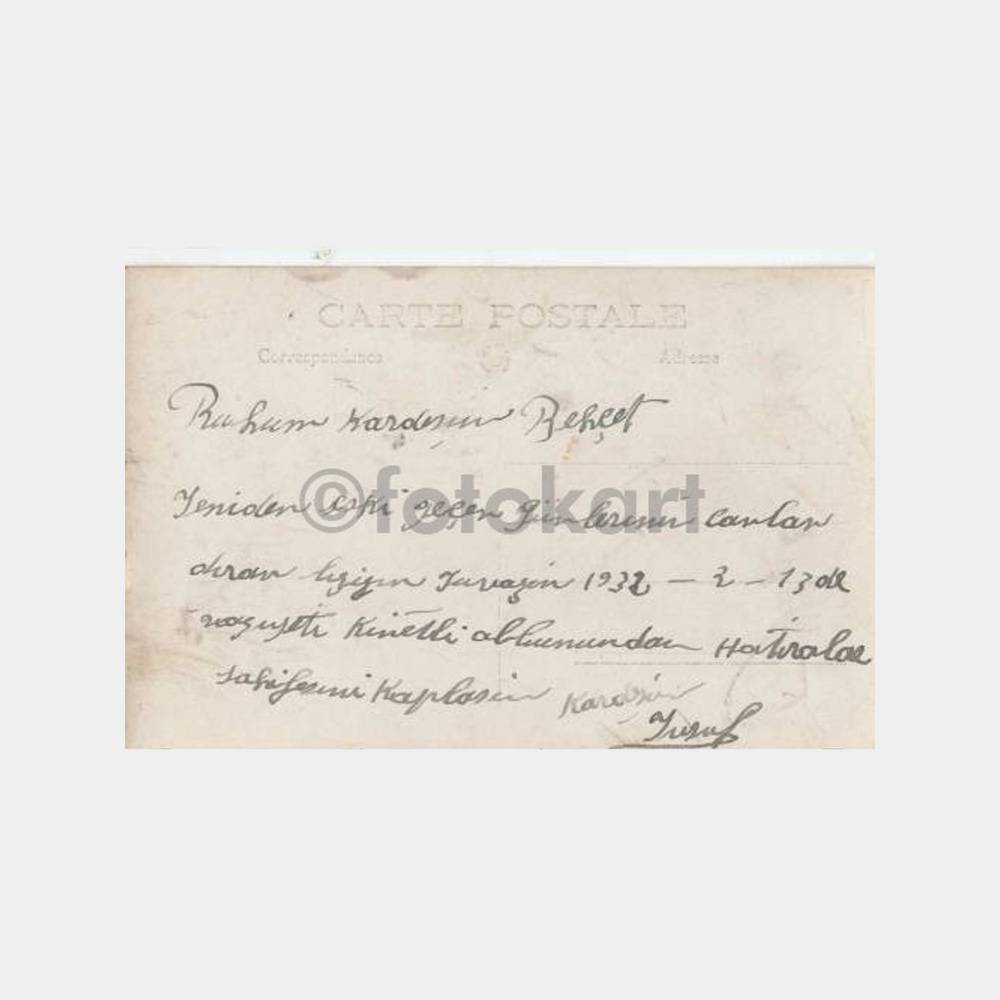 CARTE POSTALE
Correspondance Adresse
Ruhum Kardeşim Behçet
©fotokart
Yeniden Eski geçen Günlerimi canlan
dıran 1932 - 2 - 13 de
Kinetli albumundan Hatıralar
sahifesini Kaplasın Kardeşin
Yusuf